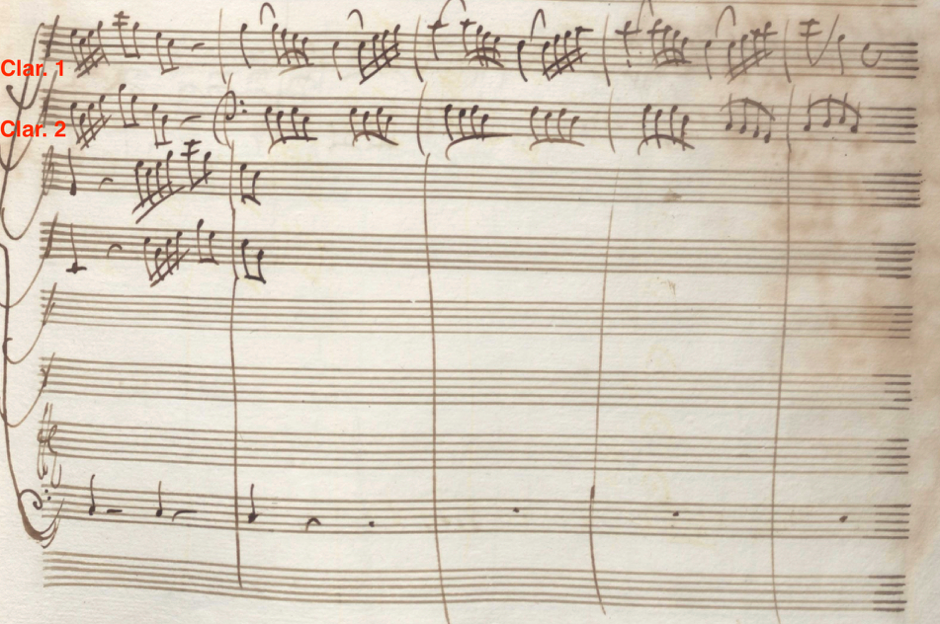 Clar. 1
Clar. 2